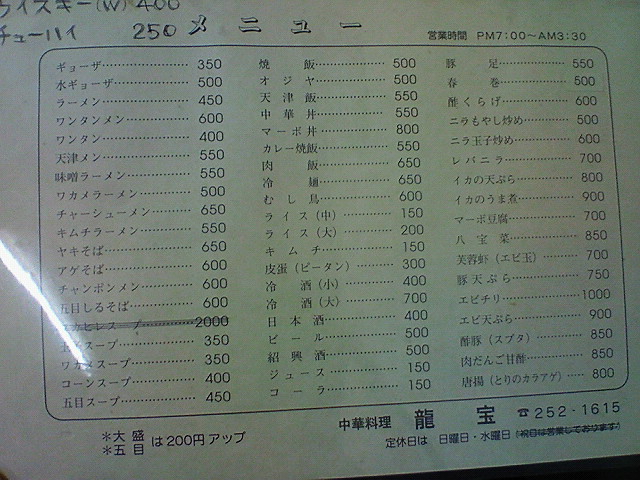 ウイスキー(W) 400
チューハイ 250
メニュー
営業時間 PM7:00～AM3:30
ギョーザ 350
水ギョーザ 500
ラーメン 450
ワンタンメン 600
ワンタン 400
天津メン 550
味噌ラーメン 550
ワカメラーメン 500
チャーシューメン 650
キムチラーメン 550
ヤキそば 650
アゲそば 600
チャンポンメン 600
五目しるそば 600
フカヒレスープ 2000
玉子スープ 350
ワカメスープ 350
コーンスープ 400
五目スープ 450
焼飯 500
オジヤ 500
天津飯 550
中華丼 550
マーボ丼 800
カレー焼飯 550
肉飯 650
冷麺 650
むし鳥 600
ライス(中) 150
ライス(大) 200
キムチ 150
皮蛋(ピータン) 300
冷酒(小) 400
冷酒(大) 700
日本酒 400
ビール 500
紹興酒 500
ジュース 150
コーラ 150
豚足 550
春巻 500
酢くらげ 600
ニラもやし炒め 500
ニラ玉子炒め 600
レバニラ 700
イカの天ぷら 800
イカのうま煮 900
マーボ豆腐 700
八宝菜 850
芙蓉蝦(エビ玉) 700
豚天ぷら 750
エビチリ 1000
エビ天ぷら 900
酢豚(スブタ) 850
肉だんご甘酢 850
唐揚(とりのカラアゲ) 800
＊大盛
＊五目 は200円アップ
中華料理 龍宝 ☎252-1615
定休日は 日曜日・水曜日(祝日は営業しております)